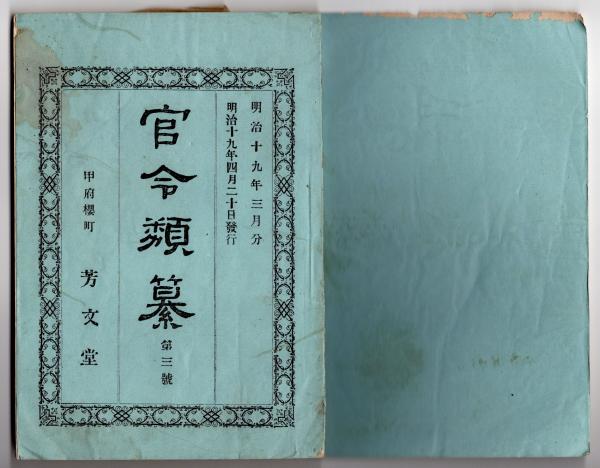 明治十九年三月分
明治十九年四月二十日發行
官令類纂 第三號
甲府櫻町 芳文堂